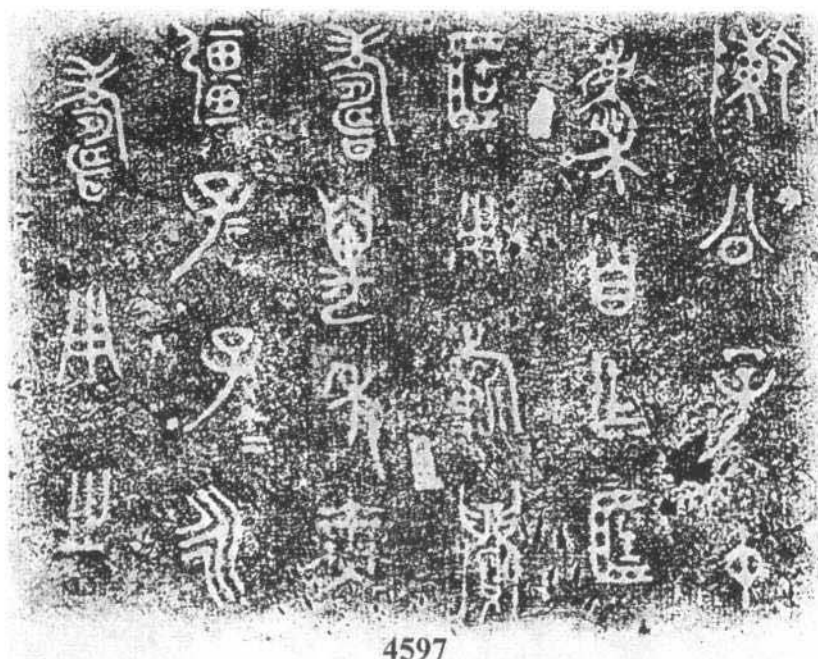 敶公子中
慶自乍匡
𠤳用祈眉
壽萬年無
疆子孫=永
壽用之
4597